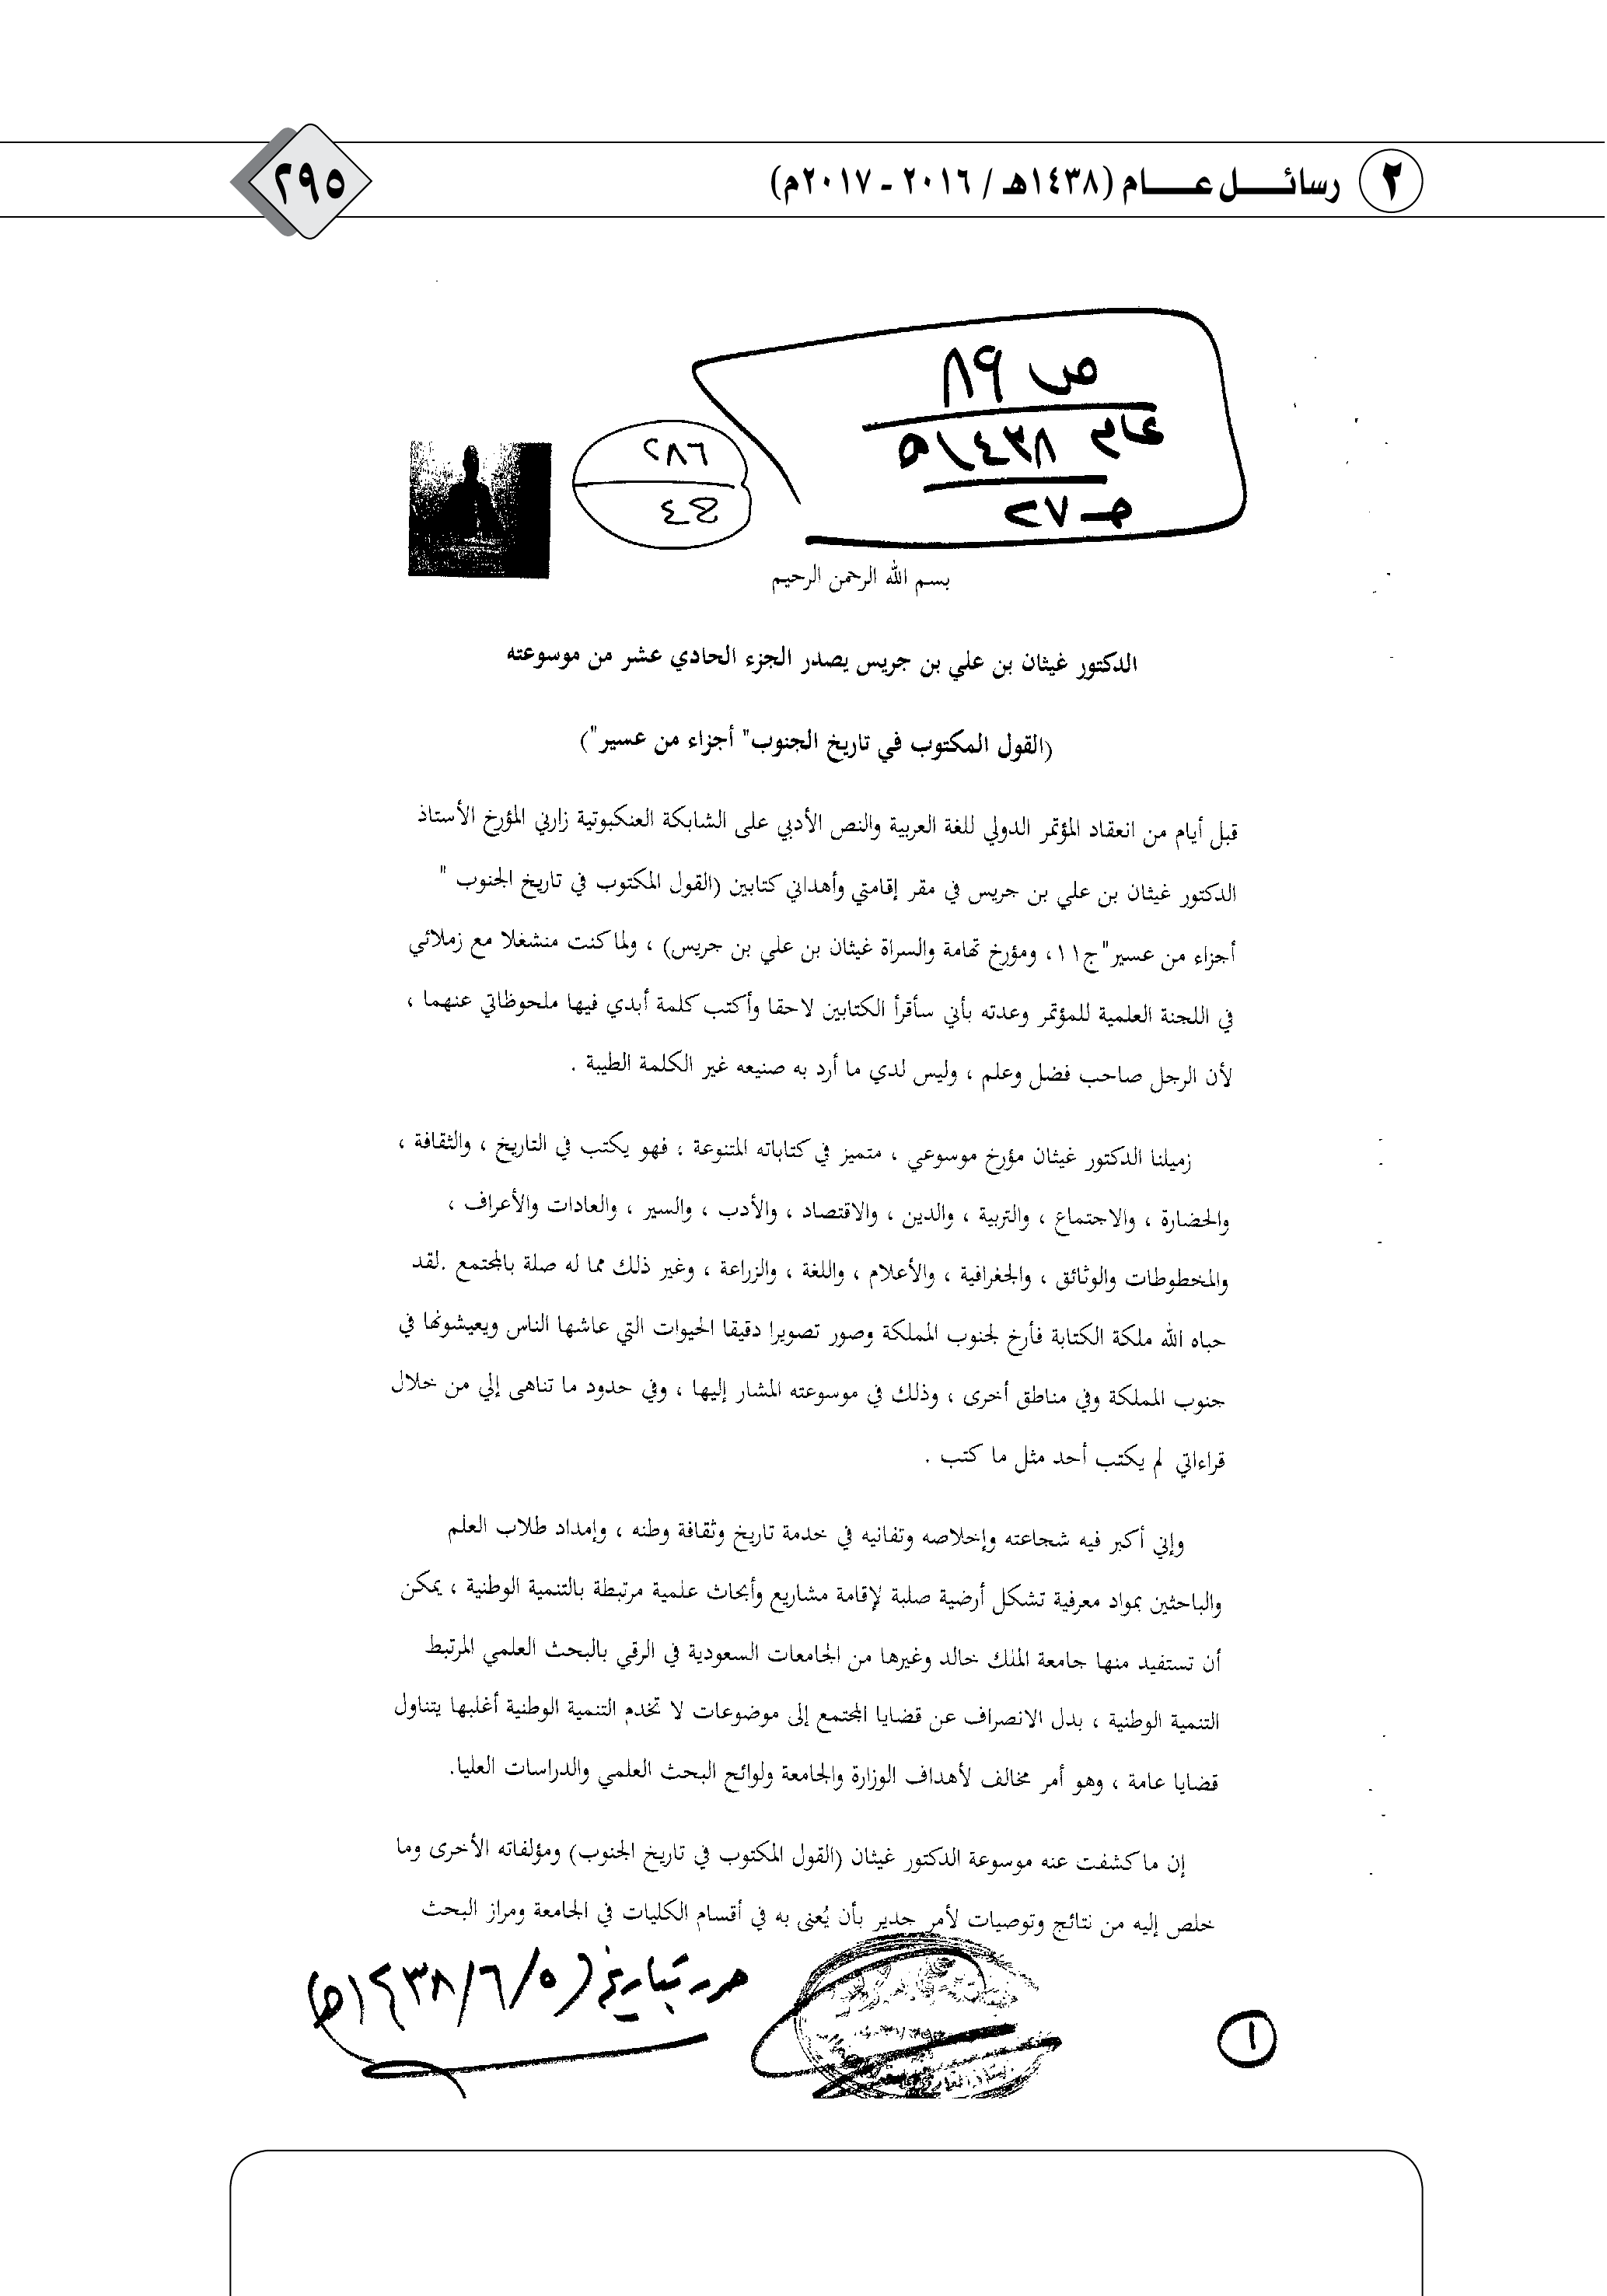 ٢ رسائـــل عـــــام (١٤٣٨هـ / ٢٠١٦ - ٢٠١٧م)
٢٩٥
ص ٨٩
عام ١٤٣٨ه
حـ ٢٧
٢٨٦
ج٤
بسم الله الرحمن الرحيم
الدكتور غيثان بن علي بن جريس يصدر الجزء الحادي عشر من موسوعته
(القول المكتوب في تاريخ الجنوب" أجزاء من عسير")
قبل أيام من انعقاد المؤتمر الدولي للغة العربية والنص الأدبي على الشابكة العنكبوتية زارني المؤرخ الأستاذ
الدكتور غيثان بن علي بن جريس في مقر إقامتي وأهداني كتابين (القول المكتوب في تاريخ الجنوب "
أجزاء من عسير"ج١١، ومؤرخ تهامة والسراة غيثان بن علي بن جريس) ، ولما كنت منشغلا مع زملائي
في اللجنة العلمية للمؤتمر وعدته بأني سأقرأ الكتابين لاحقا وأكتب كلمة أبدي فيها ملحوظاتي عنهما ،
لأن الرجل صاحب فضل وعلم ، وليس لدي ما أرد به صنيعه غير الكلمة الطيبة .
زميلنا الدكتور غيثان مؤرخ موسوعي ، متميز في كتاباته المتنوعة ، فهو يكتب في التاريخ ، والثقافة ،
والحضارة ، والاجتماع ، والتربية ، والدين ، والاقتصاد ، والأدب ، والسير ، والعادات والأعراف ،
والمخطوطات والوثائق ، والجغرافية ، والأعلام ، واللغة ، والزراعة ، وغير ذلك مما له صلة بالمجتمع .لقد
حباه الله ملكة الكتابة فأرخ لجنوب المملكة وصور تصويرا دقيقا الحيوات التي عاشها الناس ويعيشونها في
جنوب المملكة وفي مناطق أخرى ، وذلك في موسوعته المشار إليها ، وفي حدود ما تناهى إلي من خلال
قراءاتي لم يكتب أحد مثل ما كتب .
وإني أكبر فيه شجاعته وإخلاصه وتفانيه في خدمة تاريخ وثقافة وطنه ، وإمداد طلاب العلم
والباحثين بمواد معرفية تشكل أرضية صلبة لإقامة مشاريع وأبحاث علمية مرتبطة بالتنمية الوطنية ، يمكن
أن تستفيد منها جامعة الملك خالد وغيرها من الجامعات السعودية في الرقي بالبحث العلمي المرتبط
التنمية الوطنية ، بدل الانصراف عن قضايا المجتمع إلى موضوعات لا تخدم التنمية الوطنية أغلبها يتناول
قضايا عامة ، وهو أمر مخالف لأهداف الوزارة والجامعة ولوائح البحث العلمي والدراسات العليا.
إن ما كشفت عنه موسوعة الدكتور غيثان (القول المكتوب في تاريخ الجنوب) ومؤلفاته الأخرى وما
خلص إليه من نتائج وتوصيات لأمر جدير بأن يُعنى به في أقسام الكليات في الجامعة ومراز البحث
حرر بتاريخ (١٤٣٨/٦/٥ه)
١